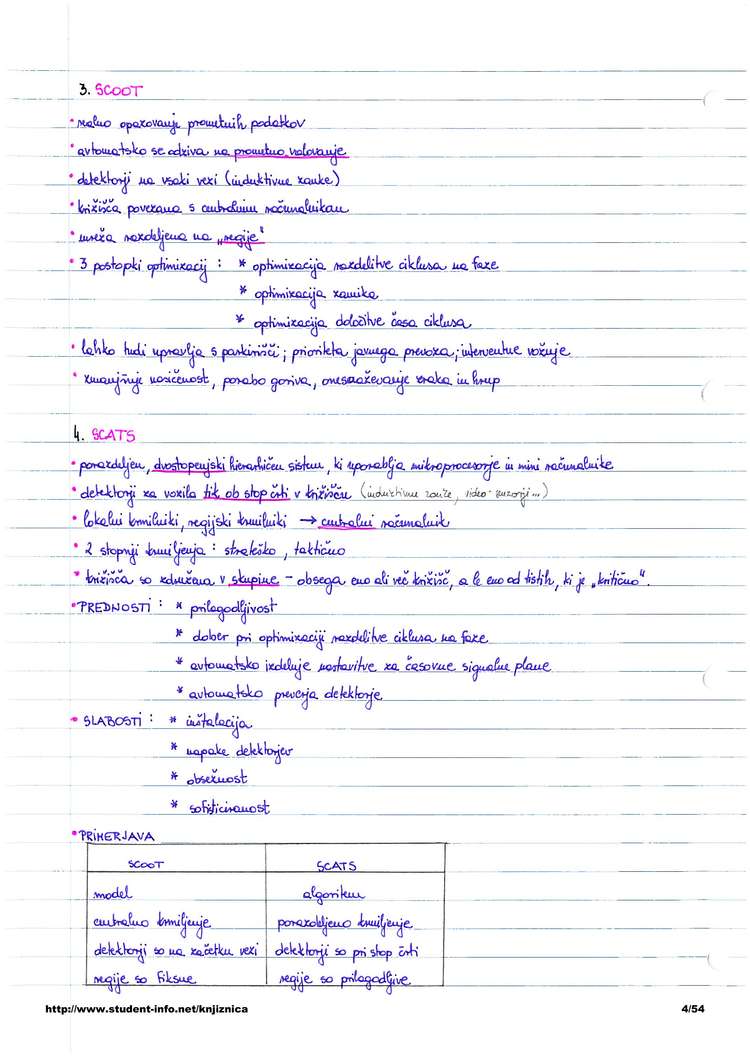 3. SCOOT
• realno opazovanje prometnih podatkov
• avtomatsko se odziva na prometno valovanje
• detektorji na vsaki vezi (induktivne zanke)
• križišča povezana s centralnim računalnikom
• mreža razdeljena na „regije"
• 3 postopki optimizacij : * optimizacija razdelitve ciklusa na faze
* optimizacija zamika
* optimizacija določitve časa ciklusa
• lahko tudi upravlja s parkirišči ; prioriteta javnega prevoza ; interventne vožnje
• zmanjšuje nasičenost, porabo goriva, onesnaževanje zraka in hrup
4. SCATS
• porazdeljen, dvostopenjski hierarhičen sistem, ki uporablja mikroprocesorje in mini računalnike
• detektorji za vozila tik ob stop črti v križišču (induktivne zanke, video-senzorji...)
• lokalni krmilniki, regijski krmilniki → centralni računalnik
• 2 stopnji krmiljenja : strateško, taktično
• križišča so združena v skupine – obsega eno ali več križišč, a le eno od tistih, ki je „kritično".
• PREDNOSTI : * prilagodljivost
* dober pri optimizaciji razdelitve ciklusa na faze
* avtomatsko izdeluje nastavitve za časovne signalne plane
* avtomatsko preverja detektorje
• SLABOSTI : * inštalacija
* napake detektorjev
* obsežnost
* sofisticiranost
• PRIMERJAVA
SCOOT SCATS
model algoritem
centralno krmiljenje porazdeljeno krmiljenje
detektorji so na začetku vezi detektorji so pri stop črti
regije so fiksne regije so prilagodljive
http://www.student-info.net/knjiznica 4/54